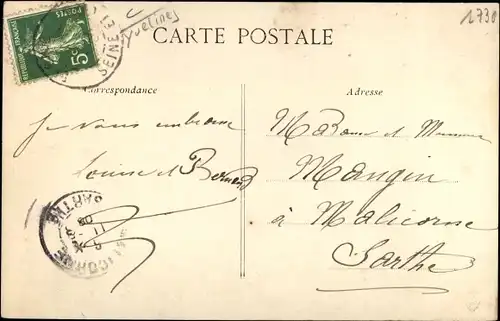 (Yvelines)
1730
POSTES
5c
SEINE ET
CARTE POSTALE
Correspondance
Adresse
Je vous embrasse
Louise et Bernard
Madame et Monsieur
Mangin
à Malicorne
Sarthe
MALICORNE
SARTHE